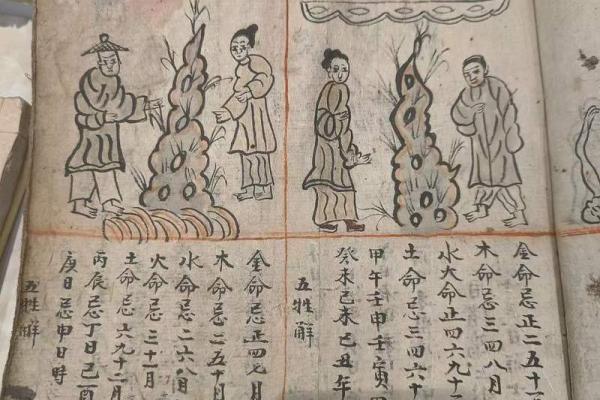 金命忌正二五十一
木命忌三四八月
水火命正四六九十
土命忌三四六十
甲午壬申壬寅
癸未己未己丑年
五牲解
金命忌正四七月
木命忌二五十月
水命忌二六八月
火命忌三十一月
土命忌六九十二月
丙辰忌丁日己
庚日忌申日時
五牲解